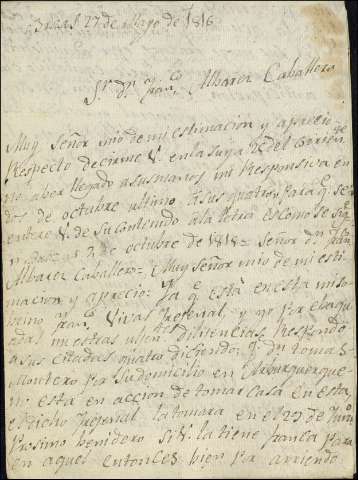 27 de Mayo de 1816.
Sr. Dn. Franco. Albarez Caballero
Muy Señor mio de mi estimacion y aprecio
Respecto decirme V. en la suya
aber llegado a sus manos mi Responsiva en
dos de octubre ultimo a sus quatro, para q. se
entere V. de su contenido a la letra es como se
2 de octubre de 1815 = Señor Dn. Franco.
Albarez Caballero = Muy Señor mio de mi esti
macion y aprecio: ya q. està en esta mi so
brino Franco. Vivas y yo por
nuestras diligencias, Respondo
a sus citadas quatro diciendo: q. Dn. tomas
Montero por su domicilio en Alburquerque
no està en accion de tomar Casa en esta,
el dicho la tomara en el 29 de Junio
Procsimo benidero si V. la tiene franca para
en aquel entonces bien por arriendo